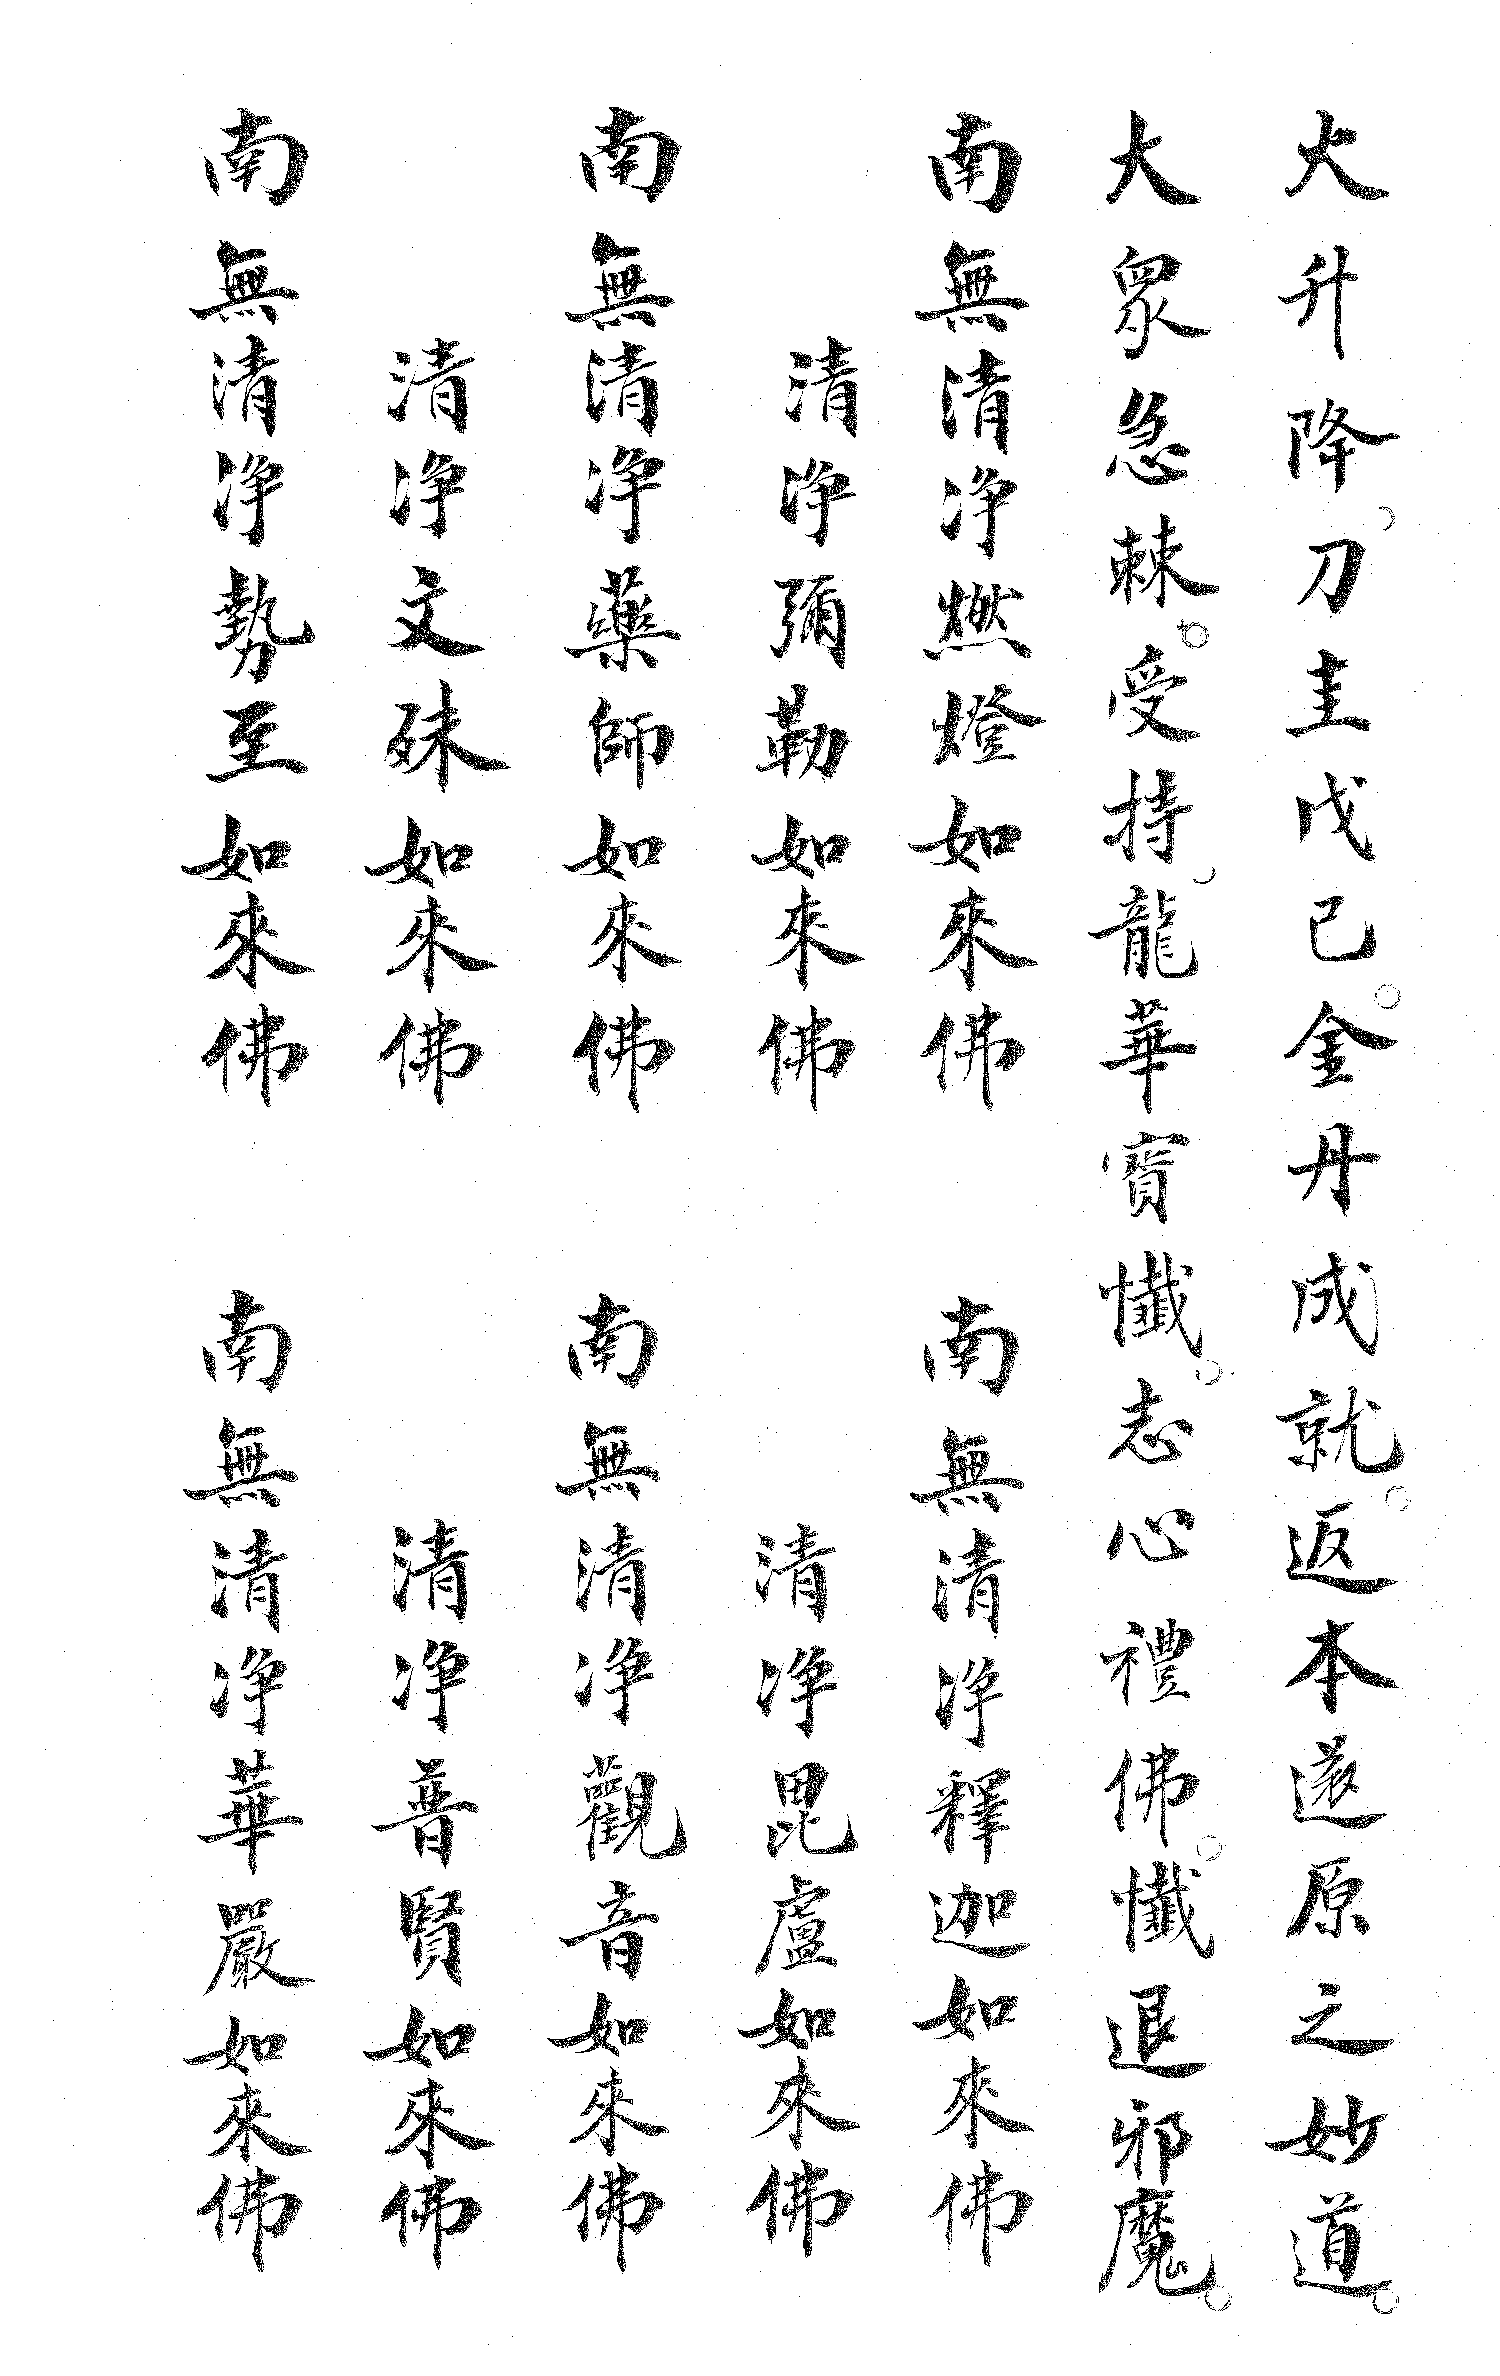 火升降、刀圭戊己。金丹成就。返本遂原之妙道。
大眾急棘。受持、龍華寶懺。志心禮佛。懺退邪魔。
南無清净燃燈如來佛　南無清净釋迦如來佛
清净彌勒如來佛　清净毘盧如來佛
南無清净藥師如來佛　南無清净觀音如來佛
清净文殊如來佛　清净普賢如來佛
南無清净勢至如來佛　南無清净華嚴如來佛